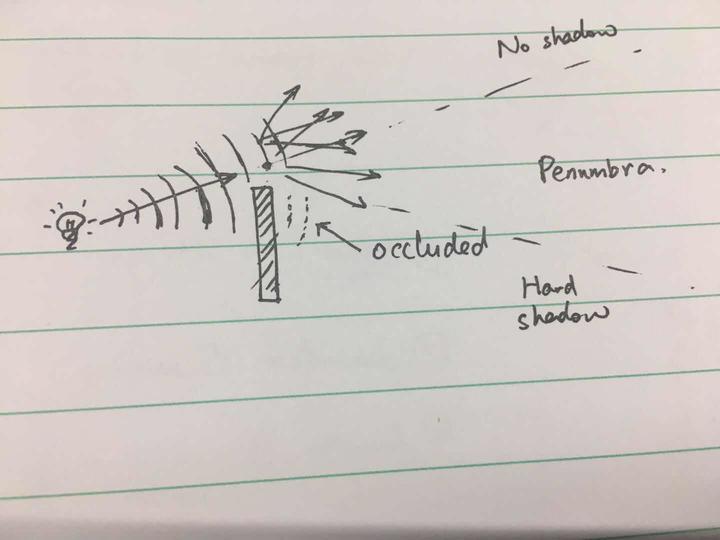 No shadow
Penumbra.
occluded
Hard
shadow